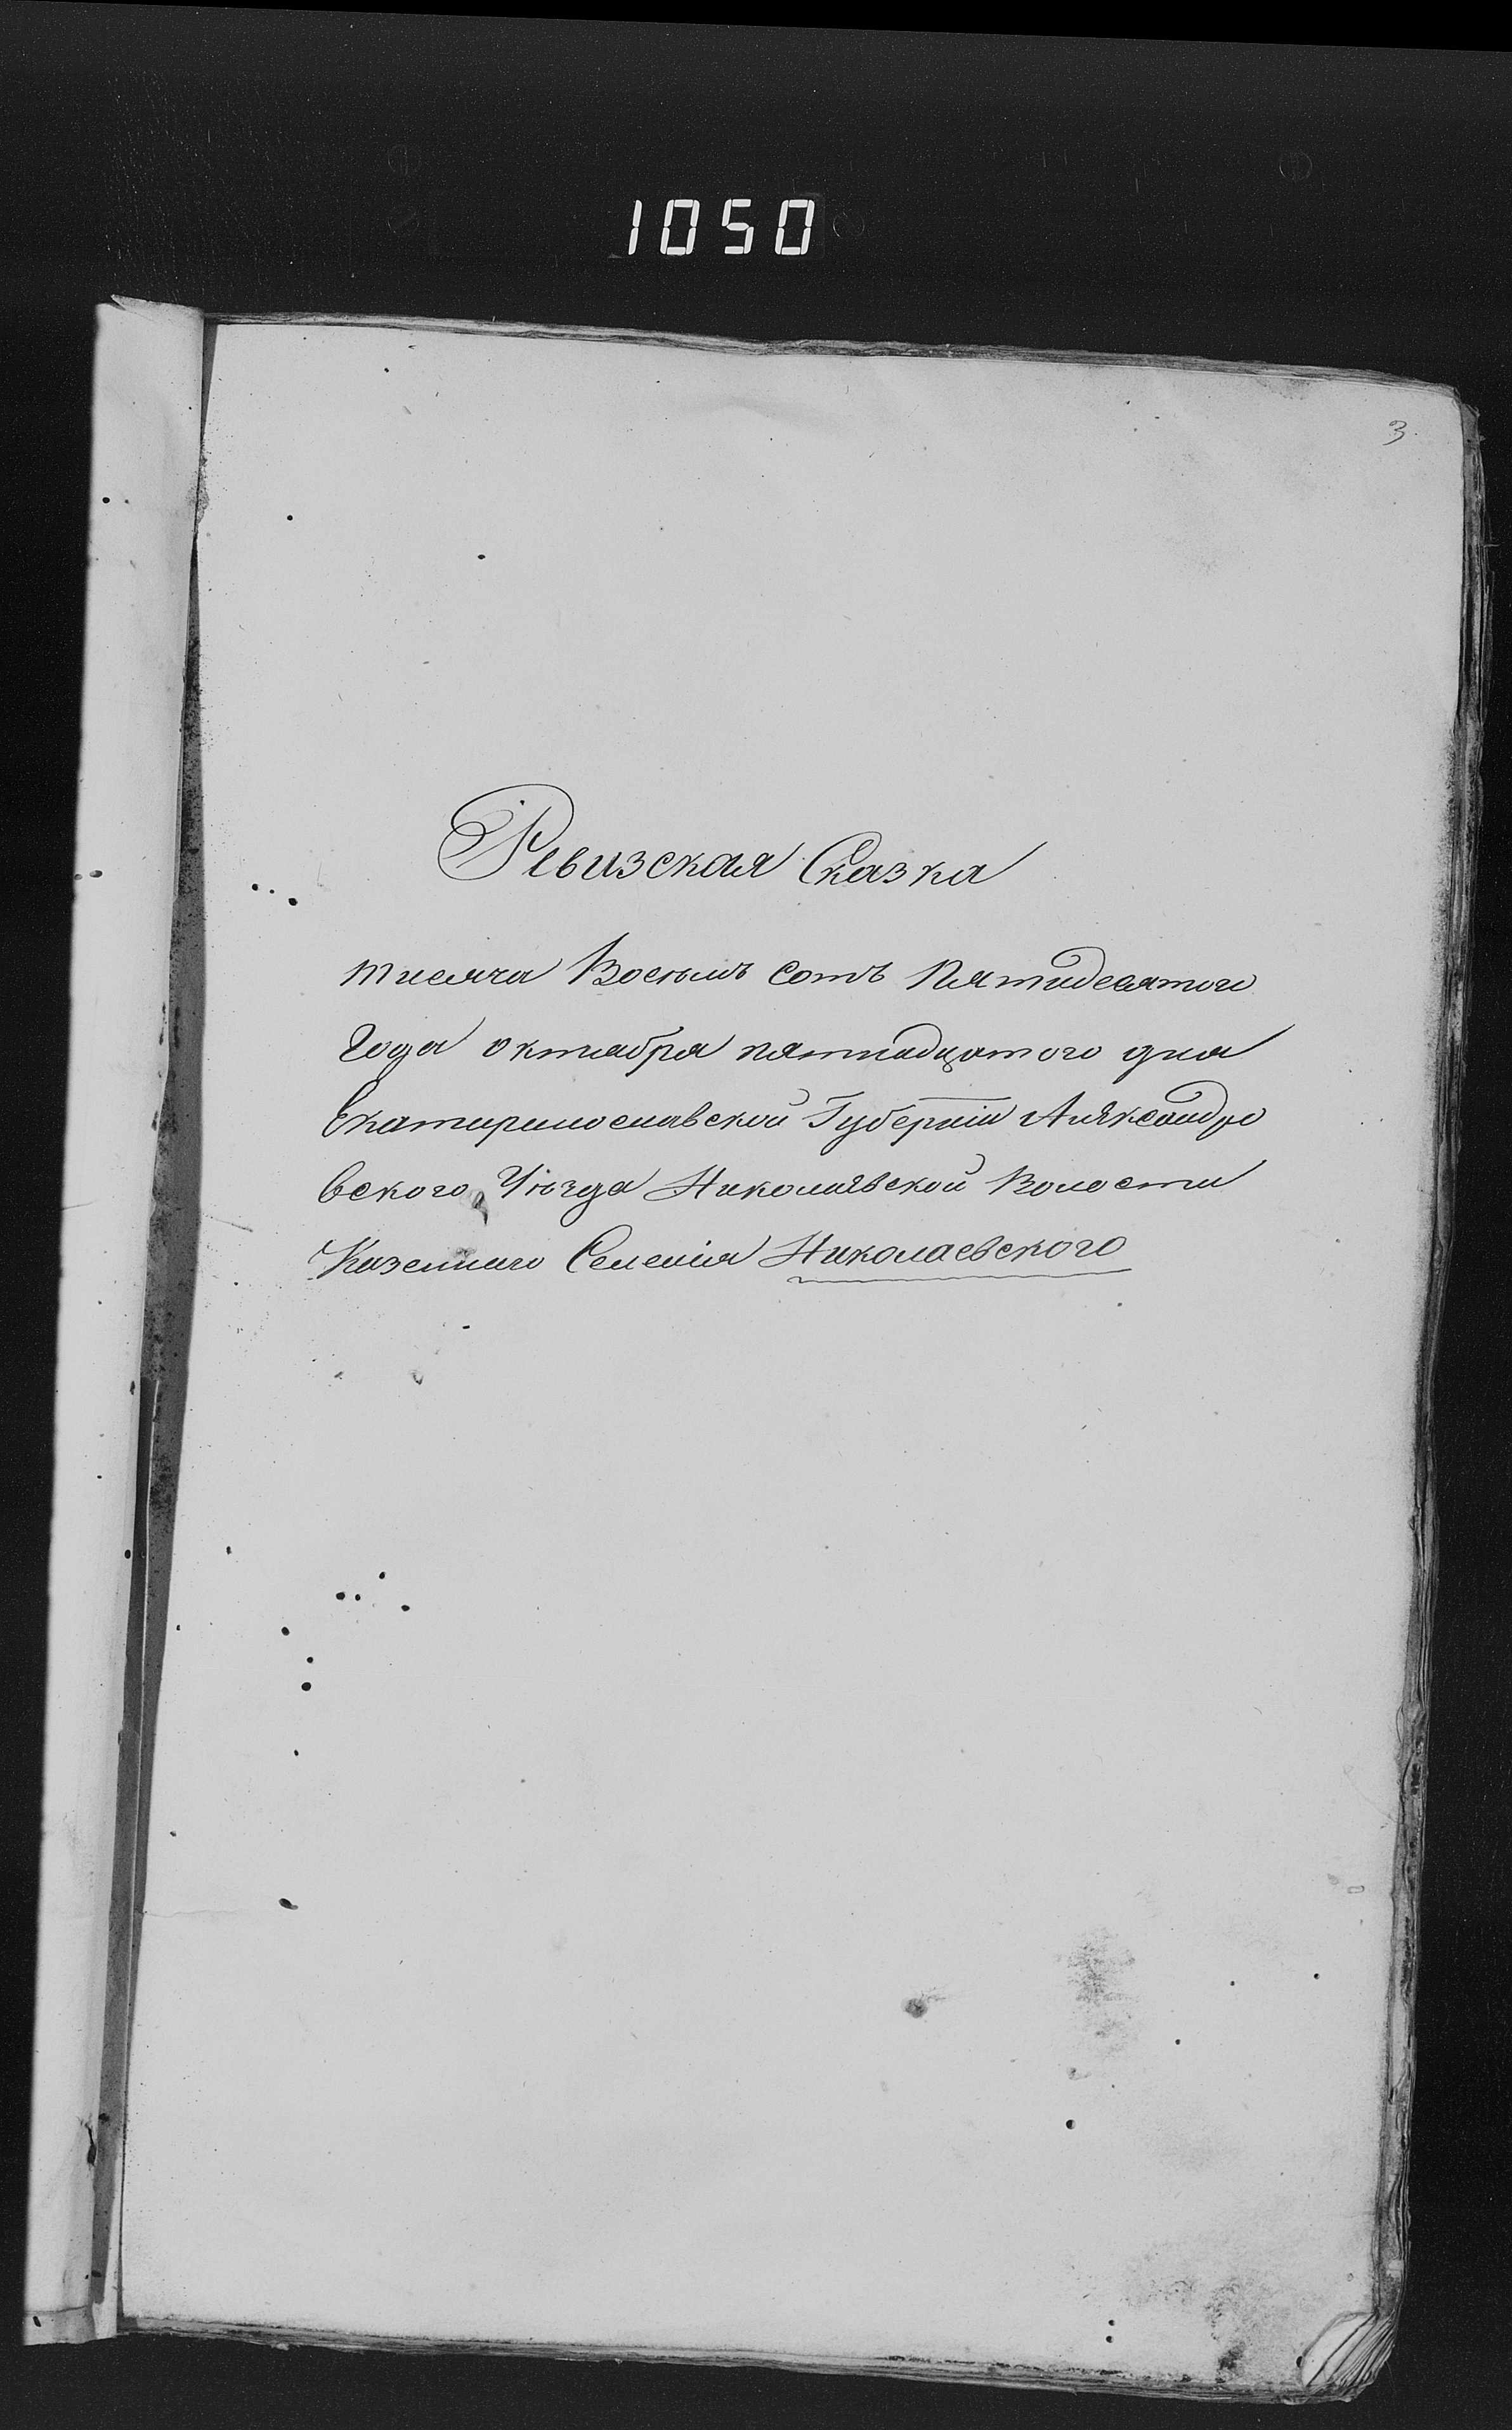 1050
3
Ревизская Сказка
тисяча Восемь сотъ Пятидесятого
Года октиабря пятнадцатого дня
Екатиринославской Губерніи Александро
вского Уѣзда Николаевской Волости
Казеннаго Селенія Николаевского